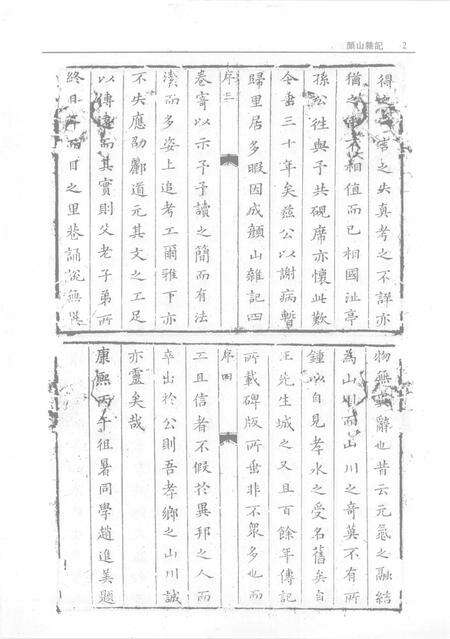 顏山雜記 2
得之
常之失真考之不詳亦
猶之
不相值而已相國沚亭
孫公徃與予共硯席亦懷此歎
今垂三十年矣茲公以謝病暫
歸里居多暇因成顏山雜記四
序三
卷寄以示予予讀之簡而有法
澹而多姿上追考工爾雅下亦
不失應劭酈道元其文之工足
以傳遠而其實則父老子弟所
終日
日之里巷誦說無異
物無
辭也昔云元氣之融結
為山川而山川之奇莫不有所
鍾以自見孝水之受名舊矣自
汪先生城之又且百餘年傳記
所載碑版所垂非不眾多也而
序四
工且信者不假於異邦之人而
卒出於公則吾孝鄉之山川誠
亦靈矣哉
康熙丙午徂暑同學趙進美題